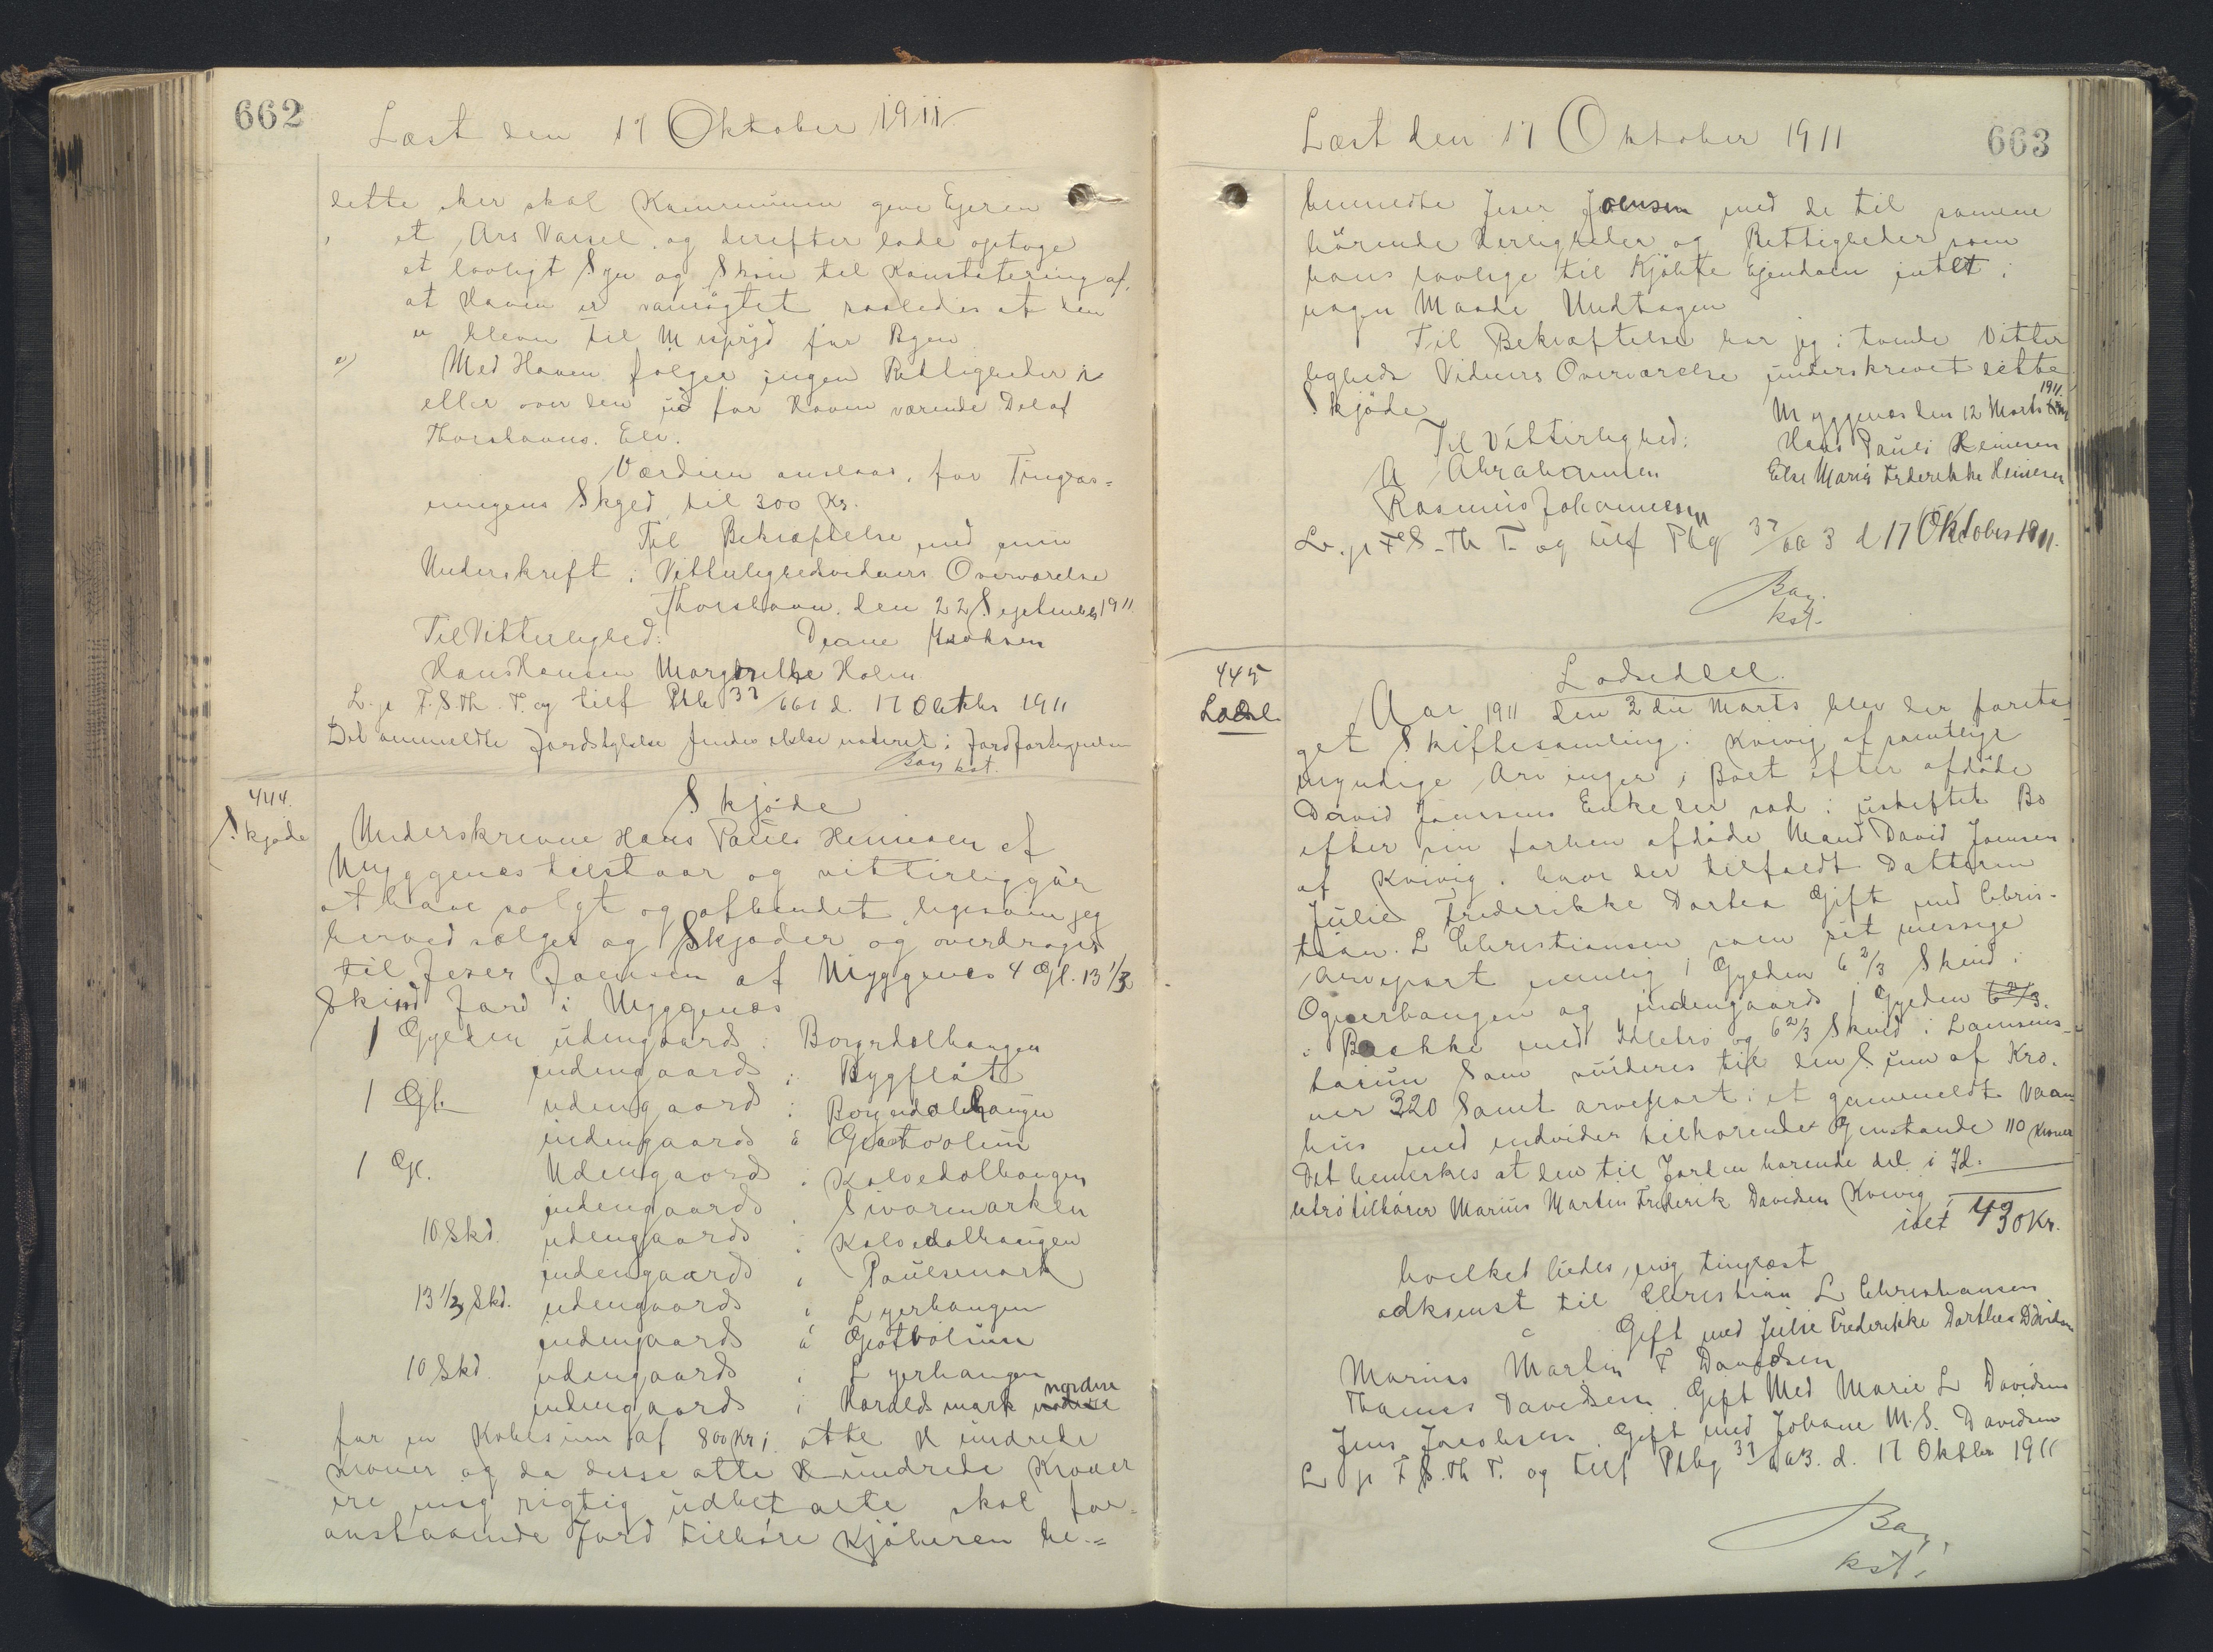 662
Læst den 17 Oktober 1911
dette sker skal Kommunen give Ejeren
et Aars Varsel, og derefter lade optage
et lovligt Syn og Skøn til Konstatering af,
at Haven er vanrögtet saaledes at den
er bleven til Mispryd for Byen
Med Haven følger ingen Rettigheder i
eller over den ud for Haven værende Del af
Thorshavns Elv.
Værdien anslaas, for Tinglæs=
ningens Skyld, til 300 Kr.
Til Bekræftelse med min
Underskrift i Vitterlighedsvidners Overværelse
Thorshavn, den 22 September 1911
Til Vitterlighed:
Hans Hansen Margrethe Holm
L. p F. S. Th. T. og tilf Ptb 37/661 d. 17 Oktbr 1911
Det anmeldte Jordstykke findes ikke noteret i Jordfortegnelsen
Bay kst.
444.
Skjøde
Skjøde
Underskrevne Hans Pauli Heinesen af
Myggenæs tilstaar og vitterliggør
at have solgt og afhændet, ligesom jeg
herved sælger og Skjøder og overdrager
til Jeser Joensen af Myggenæs 4 Gl. 13 1/3
Skind Jord i Myggenæs
1 Gylden udengaards i Borgadalhaugen
indengaards i Bygflöt
1 Gl. udengaards i Borgadalshaugen
indengaards á Gjøtvolum
1 Gl. Udengaards i Kalvedalhaugen
indengaards i Sivarmarken
10 Skd. udengaards i Kalvedalhaugen
indengaards i Paulsmark
13 1/3 Skd. udengaards i Lyerhaugen
indengaards á Gjøtvolum
10 Skd. udengaards i Lyerhaugen
indengaards i Haraldsmark nordere
for en Købesum af 800 Kr; otte Hundrede
Kroner og da disse otte Hundrede Kroner
ere mig rigtig udbetalte skal for-
anstaaende Jord tilhøre Kjøberen be-=
663
Læst den 17 Oktober 1911
bemeldte Jeser Joensen med de til samme
hörende Herligheder og Rettigheder som
hans lovlige til Kjöbte Ejendom intet i
nogen Maade Undtagen
Til Bekræftelse har jeg i tvende Vitter
ligheds Vidners Overværelse underskrevet dette
Skjøde
Myggenæs den 12 Marts 1911
Til Vitterlighed:
Hans Pauli Heinesen
A Abrahamsen
Else Maria Frederikke Heinesen
Rasmus Johannesen
L. p F S. Th T. og tilf Ptbg 37/663 d 17 Oktober 1911.
Bay.
kst.
445
Lodsl.
Lodseddel.
Aar 1911 den 2 die Marts blev der foreta-
get Skiftesamling i Kvivig af samtlige
myndige Arvinger i Boet efter afdöde
David Joensens Enke der sad i uskiftet Bo
efter sin forhen afdöde Mand David Joensen
af Kvivig, hvor der tilfaldt Datteren
Julie Frederikke Dorthea Gift med Chris-
tian L Christiansen som sit messige
Arvepart nemlig 1 Gylden 6 2/3 Skind i
Ognerhaugen og indengaards 1 Gylden 6 2/3.
i Bakke med Idletrö og 6 2/3 Skind i Lamsens-
tærum Som vurderes til den Sum af Kro.
ner 320 Samt arvepart i et gammeldt Vaan
hus med endvidere tilhørende Genstande 110 Kroner
Det bemerkes at den til Jorden hørende del i Id-
letrö tilhörer Marius Martin Frederik Davidsen Kvivig
ialt 430 Kr.
hvilket bedes, mig tinglæst
adkomst til Christian L Christiansen
Gift med Julie Frederikke Dorthea Davidsen
Marius Martin F Davidsen
Thomas Davidsen. Gift Med Marie L Davidsen
Jens Jacobsen. Gift med Johane M. S. Davidsen
L p F S. Th T. og tilf Ptbg 37/663. d. 17 Oktbr 1911
Bay.
kst.